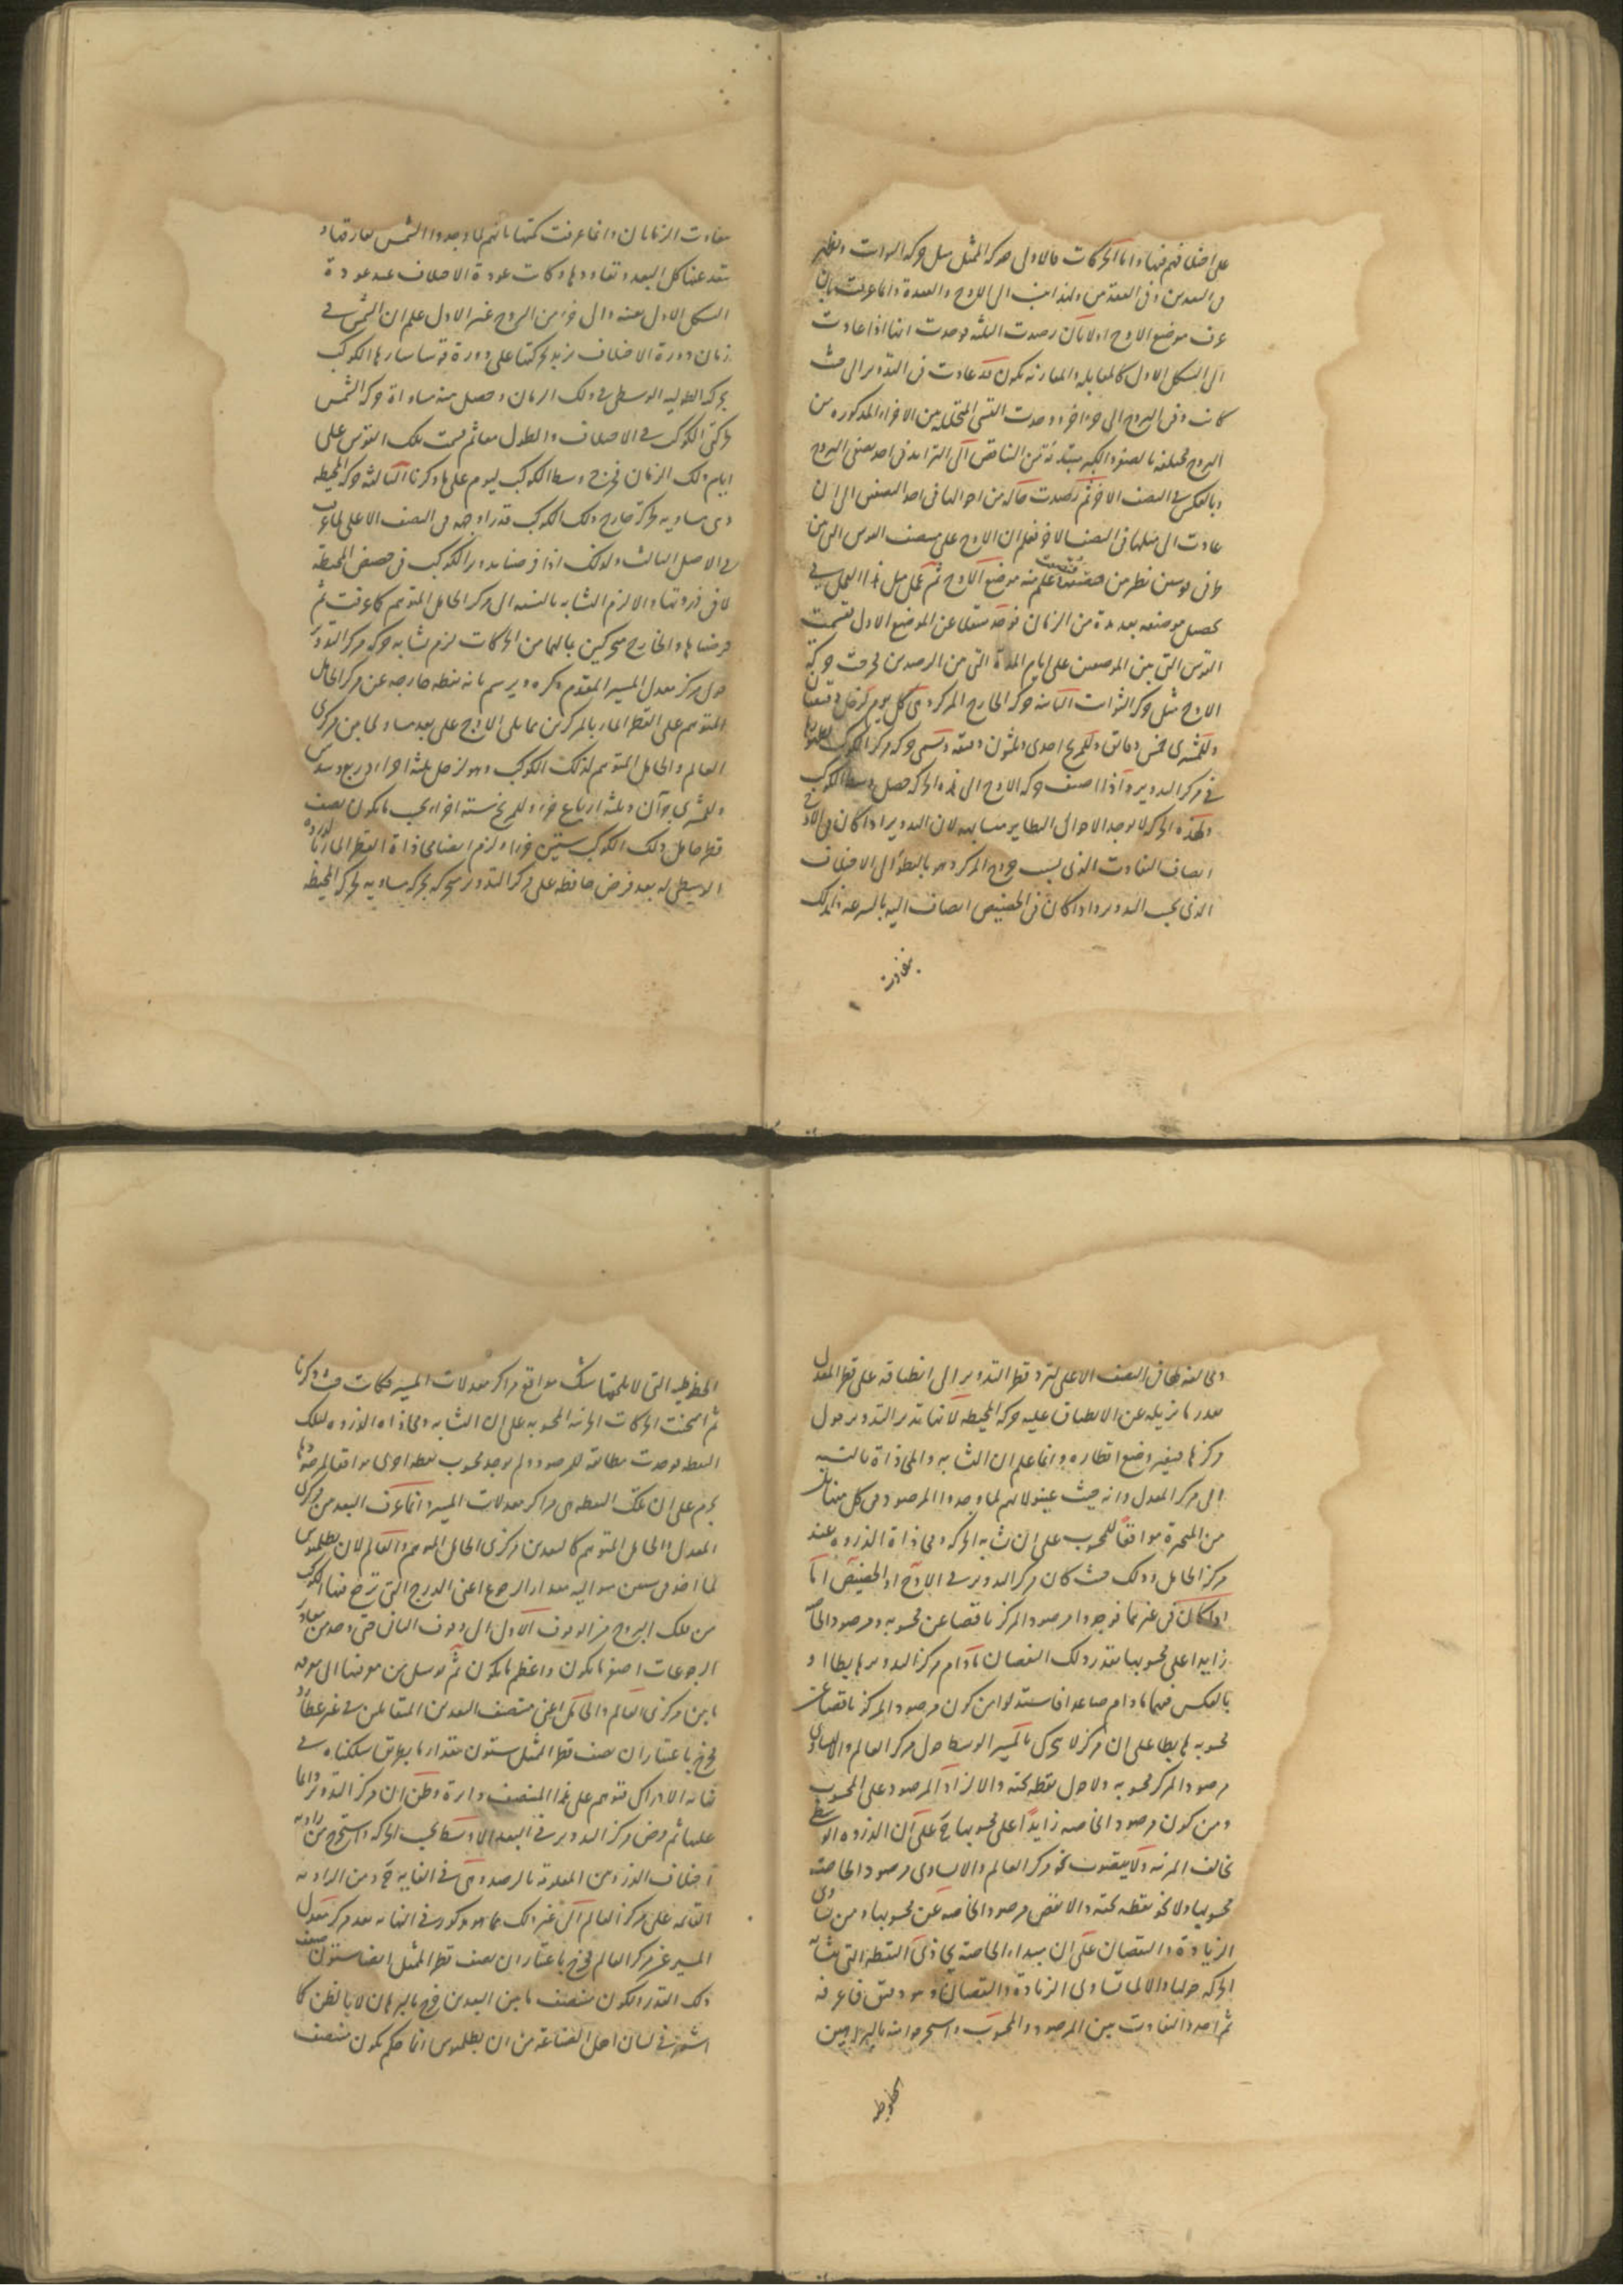 على اختلافهم فيها واما الحركات فالاولى حركة الممثل مثل حركة الثوابت ويظهر
في البعدين وفي العقدتين ولهذا انتسب الى الاوج والعقدة وانما عرفت بان
عرف موضع الاوج اولا بان رصدت الثلثة فوجدت انها اذا عادت
الى الشكل الاول كالمقابلة والمقارنة يكون قد عادت في التدوير الى حيث
كانت وفي البروج الى جزء اخر ووجدت القسى المتخللة بين الاجزاء المذكورة من
البروج مختلفة بالصغر والكبر مبتدئة من التناقص الى التزايد في احد نصفى البروج
وبالعكس في النصف الاخر ثم رصدت حالة من احوالها في احد النصفين الى ان
عادت الى مثلها في النصف الاخر فعلم ان الاوج على منتصف القوس التي من
علم منه موضع الاوج ثم عمل مثل هذا العمل في
تحصيل موضعه بعد مدة من الزمان فوجد منتقلا عن الموضع الاول فقسمت
القوس التي بين الموضعين على ايام المدة التي بين الرصدين فخرجت حركة
الاوج مثل حركة الثوابت الثانية حركة الخارج المركز وهي كل يوم لزحل دقيقتان
وللمشترى خمس دقائق وللمريخ احدى وثلثون دقيقة وتسمى حركة مركز الكوكب
في مركز التدوير واذا اضيف حركة الاوج الى هذه الحركة حصل وسط الكوكب
ولهذه الحركة لا يوجد الاحوال النظاير متشابهة لان التدوير اذا كان في الاوج
انضاف التفاوت الذي بسبب خروج المركز وهو بالبطؤ الى الاختلاف
الذي بحسب التدوير واذا كان في الحضيض انضاف اليه بالسرعة فلذلك
بتفاوت
بتفاوت الزمانان وانما عرفت كميتها بانهم لما وجدوا الشمس تفارقها و
تبتعد عنها كل البعد وتعاودها وكانت عودة الاختلاف عند عودة
الشكل الاول بعينه والى جزء من البروج غير الاول علم ان الشمس في
زمان دورة الاختلاف تزيد بحركتها على دورة قوسا سارها الكوكب
بحركة الطولية الوسطى في ذلك الزمان وحصل منه مساواة حركة الشمس
لحركتي الكوكب في الاختلاف والطول معا ثم قسمت تلك القوس على
ايام ذلك الزمان فخرج وسط الكوكب ليوم على ما ذكرنا الثالثة حركة المحيطة
وهي مساوية لحركة خارج ذلك الكوكب قدرا وجهة في النصف الاعلى لما عرفت
في الاصل الثالث ولذلك اذا فرضنا تدوير الكوكب في حضيض المحيطة
لا في ذروتها والا لزم التشابه بالنسبة الى مركز الحامل المتوهم كما عرفت ثم
فرضناها والخارج متحركين بالهما من الحركات لزم تشابه حركة مركز التدوير
حول مركز معدل المسير المتقدم ذكره ويرسم بانه نقطة خارجة عن مركز الحامل
المتوهم على القطر المار بالمركزين مما يلي الاوج على بعد مساو لما بين مركزى
العالم والحامل المتوهم لذلك الكوكب وهو لزحل ثلثة اجزاء وربع وسدس
وللمشترى جزآن وثلثة ارباع جزء وللمريخ ستة اجزاء بحسب ما يكون نصف
قطر حامل ذلك الكوكب ستين جزءا ولزم ايضا محاذاة القطر المار بالذروة
الاوسطى له بعد فرض حافظة على مركز التدوير متحركة بحركة مساوية لحركة المحيطة
ومخالفة لها في النصف الاعلى لترد قطر التدوير الى انطباقه على قطر المعدل
بقدر ما تزيله عن الانطباق عليه حركة المحيطة لانها تدير التدوير حول
مركزها فيتغير وضع اقطاره وانما علم ان التشابه والمحاذاة بالنسبة
الى مركز المعدل وانه حيث عينوه لانهم لما وجدوا المرصود في كل
من المتحيرة موافقا للمحسوب على ان تشابه الحركة ومحاذاة الذروة عند
مركز الحامل وذلك حيث كان مركز التدوير في الاوج او الحضيض اما
اذا كان في غيرهما فوجدوا مرصود المركز ناقصا عن محسوبه ومرصود الخاصة
زايدا على محسوبها بقدر ذلك النقصان ما دام مركز التدوير هابطا او
بالعكس فيهما ما دام صاعدا فاستدلوا من كون مرصود المركز ناقصا عن
محسوبه هابطا على ان المركز لا يتحرك بالمسير الوسط حول مركز العالم والا لساوى
مرصود المركز محسوبه ولا حول نقطة تحته والا لزاد المرصود على المحسوب
ومن كون مرصود الخاصة زايدا على محسوبها ح على ان الذروة الوسطى
تخالف المرئية ولا يقف نحو مركز العالم والا لساوى مرصود الخاصة
محسوبها ولا نحو نقطة تحته والا نقص مرصود الخاصة عن محسوبها ومن تساوى
الزيادة والنقصان على ان مبداء الخاصة يحاذى النقطة التي تشابه
الحركة حولها والا لما تساوى الزيادة والنقصان وهو دقيق فاعرفه
ثم اخذوا التفاوت بين المرصود والمحسوب واستخرجوا منه بالبراهين
الخطوطية
الخطوطية التي لا يلحقها شك مواقع مراكز معدلات المسير فكانت حيث ذكرنا
ثم امتحنت الحركات الجزئية المحسوبة على ان التشابه ومحاذاة الذروة لتلك
النقطة فوجدت مطابقة للمرصود ولم يوجد محسوب نقطة اخرى موافقا لمرصودها
فجزم على ان تلك النقطة هي مراكز معدلات المسير وانما عرف البعد بين مركزى
المعدل والحامل المتوهم كالبعد بين مركزى الحامل المتوهم والعالم لان بطلميوس
لما اخذ في سنين متوالية مقدار الرجوع اعنى الدرج التي ترجع فيها الكوكب
من فلك البروج من الوقوف الاول الى وقوف الثاني حتى وجد من مقادير
الرجوعات اصغر ما يكون واعظم ما يكون ثم توسل من معرفتها الى معرفة
ما بين مركزى العالم والحامل اعنى منتصف البعدين المتقابلين في غير عطارد
فخرج باعتبار ان نصف قطر الممثل ستون مقدار ما بطريق سلكناه في
نهاية الادراك فتوهم على هذا المنتصف دائرة وظن ان مركز التدوير دائما
عليها ثم فرض مركز التدوير في البعد الاوسط بحسب الحركة واستخرج من زاوية
اختلاف الذروتين المعلومة بالرصد وهي في الغاية ح ومن الزاوية
القائمة على مركز العالم الى غير ذلك مما هو مذكور في النهاية بعد مركز معدل
المسير عن مركز العالم فخرج باعتبار ان نصف قطر الممثل ايضا ستون ضعف
ذلك القدر ولكون منتصف ما بين البعدين خرج بالبرهان لا بالظن كما
اشتهر في لسان اهل الصناعة من ان بطلميوس انما حكم بكون منتصف